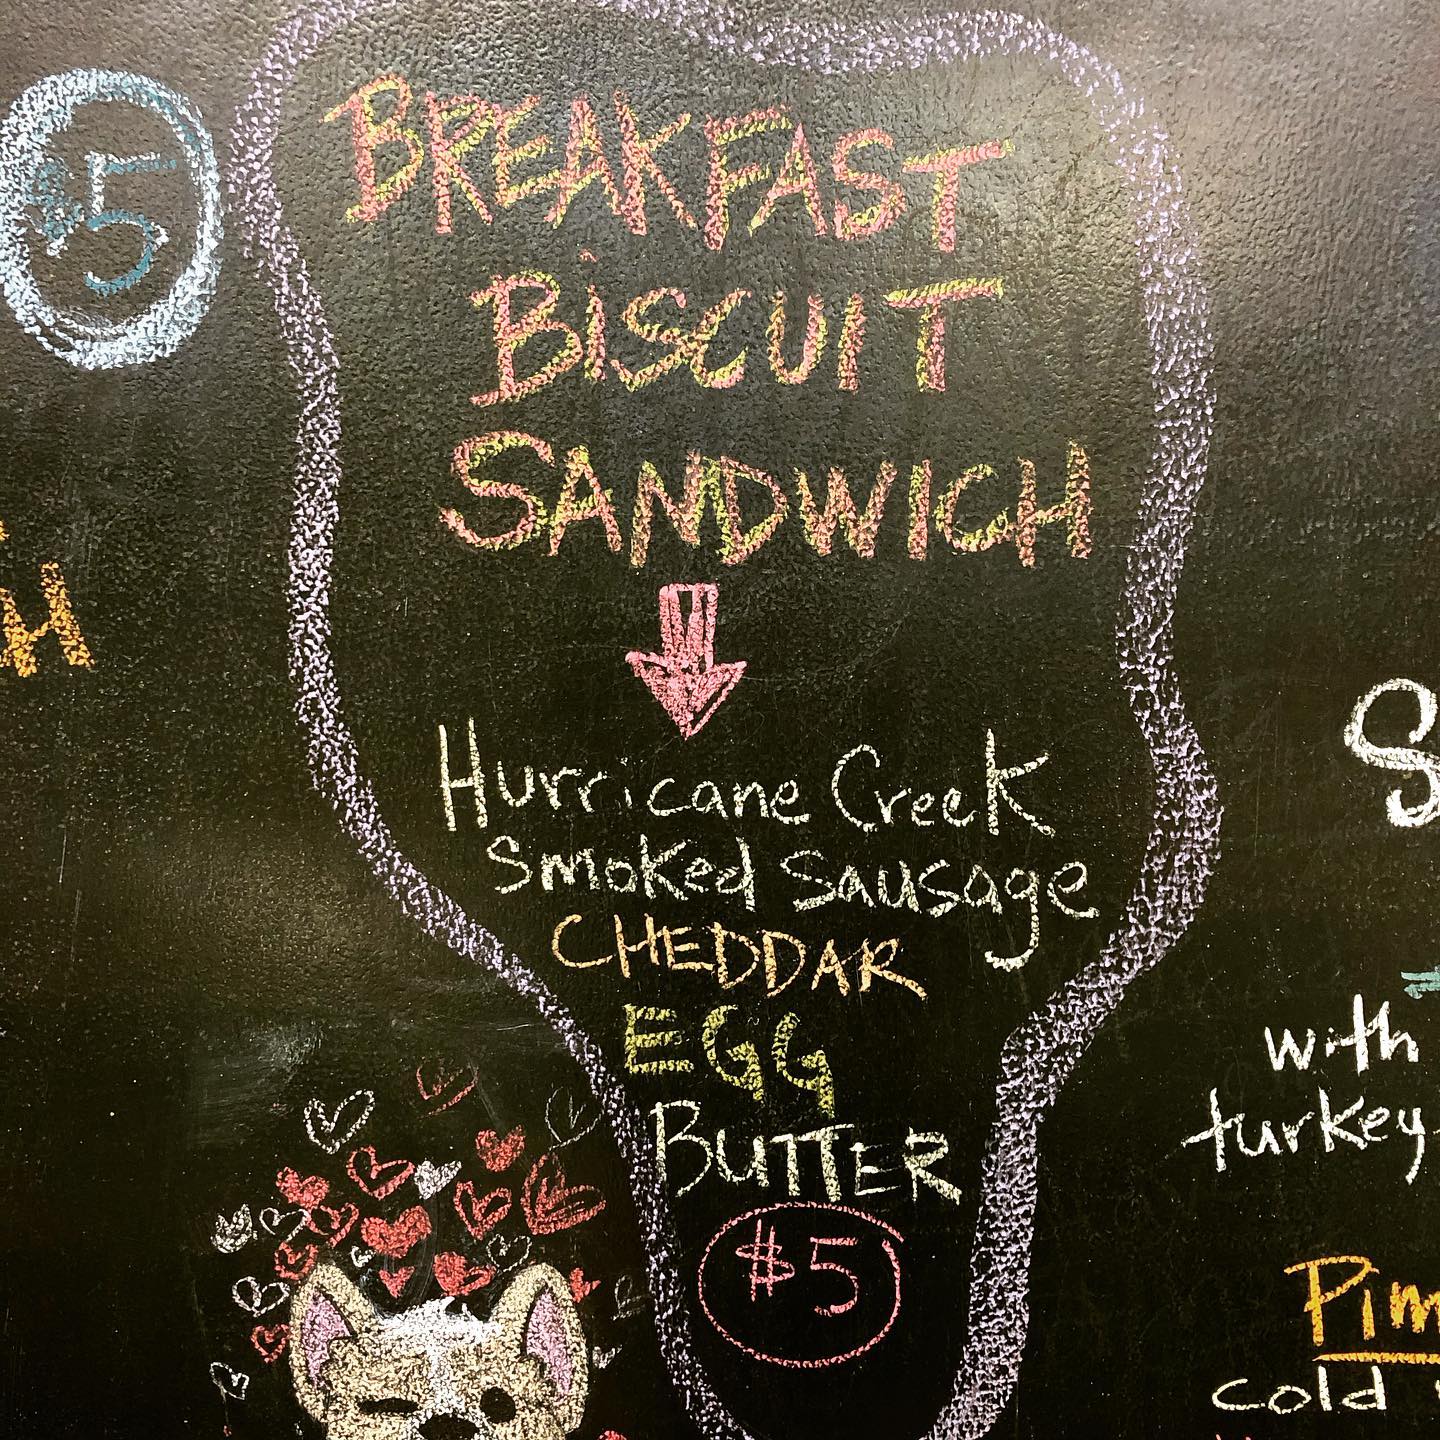 $5
BREAKFAST
BISCUIT
SANDWICH
Hurricane Creek
Smoked Sausage
CHEDDAR
EGG
BUTTER
$5
H
S
with
turkey
Pim
cold